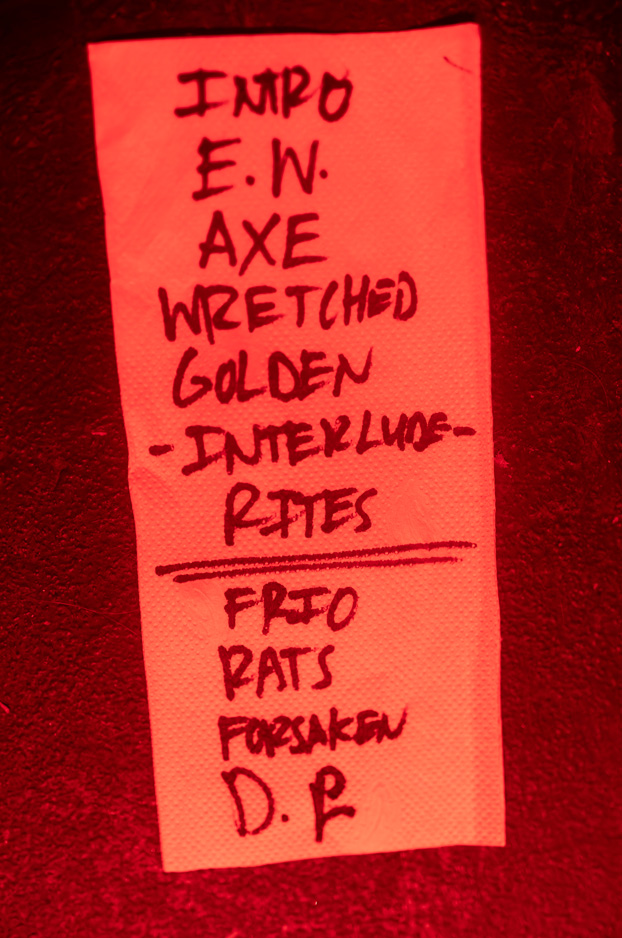 INTRO
E.W.
AXE
WRETCHED
GOLDEN
-INTERLUDE-
RITES
FRIO
RATS
FORSAKEN
D.